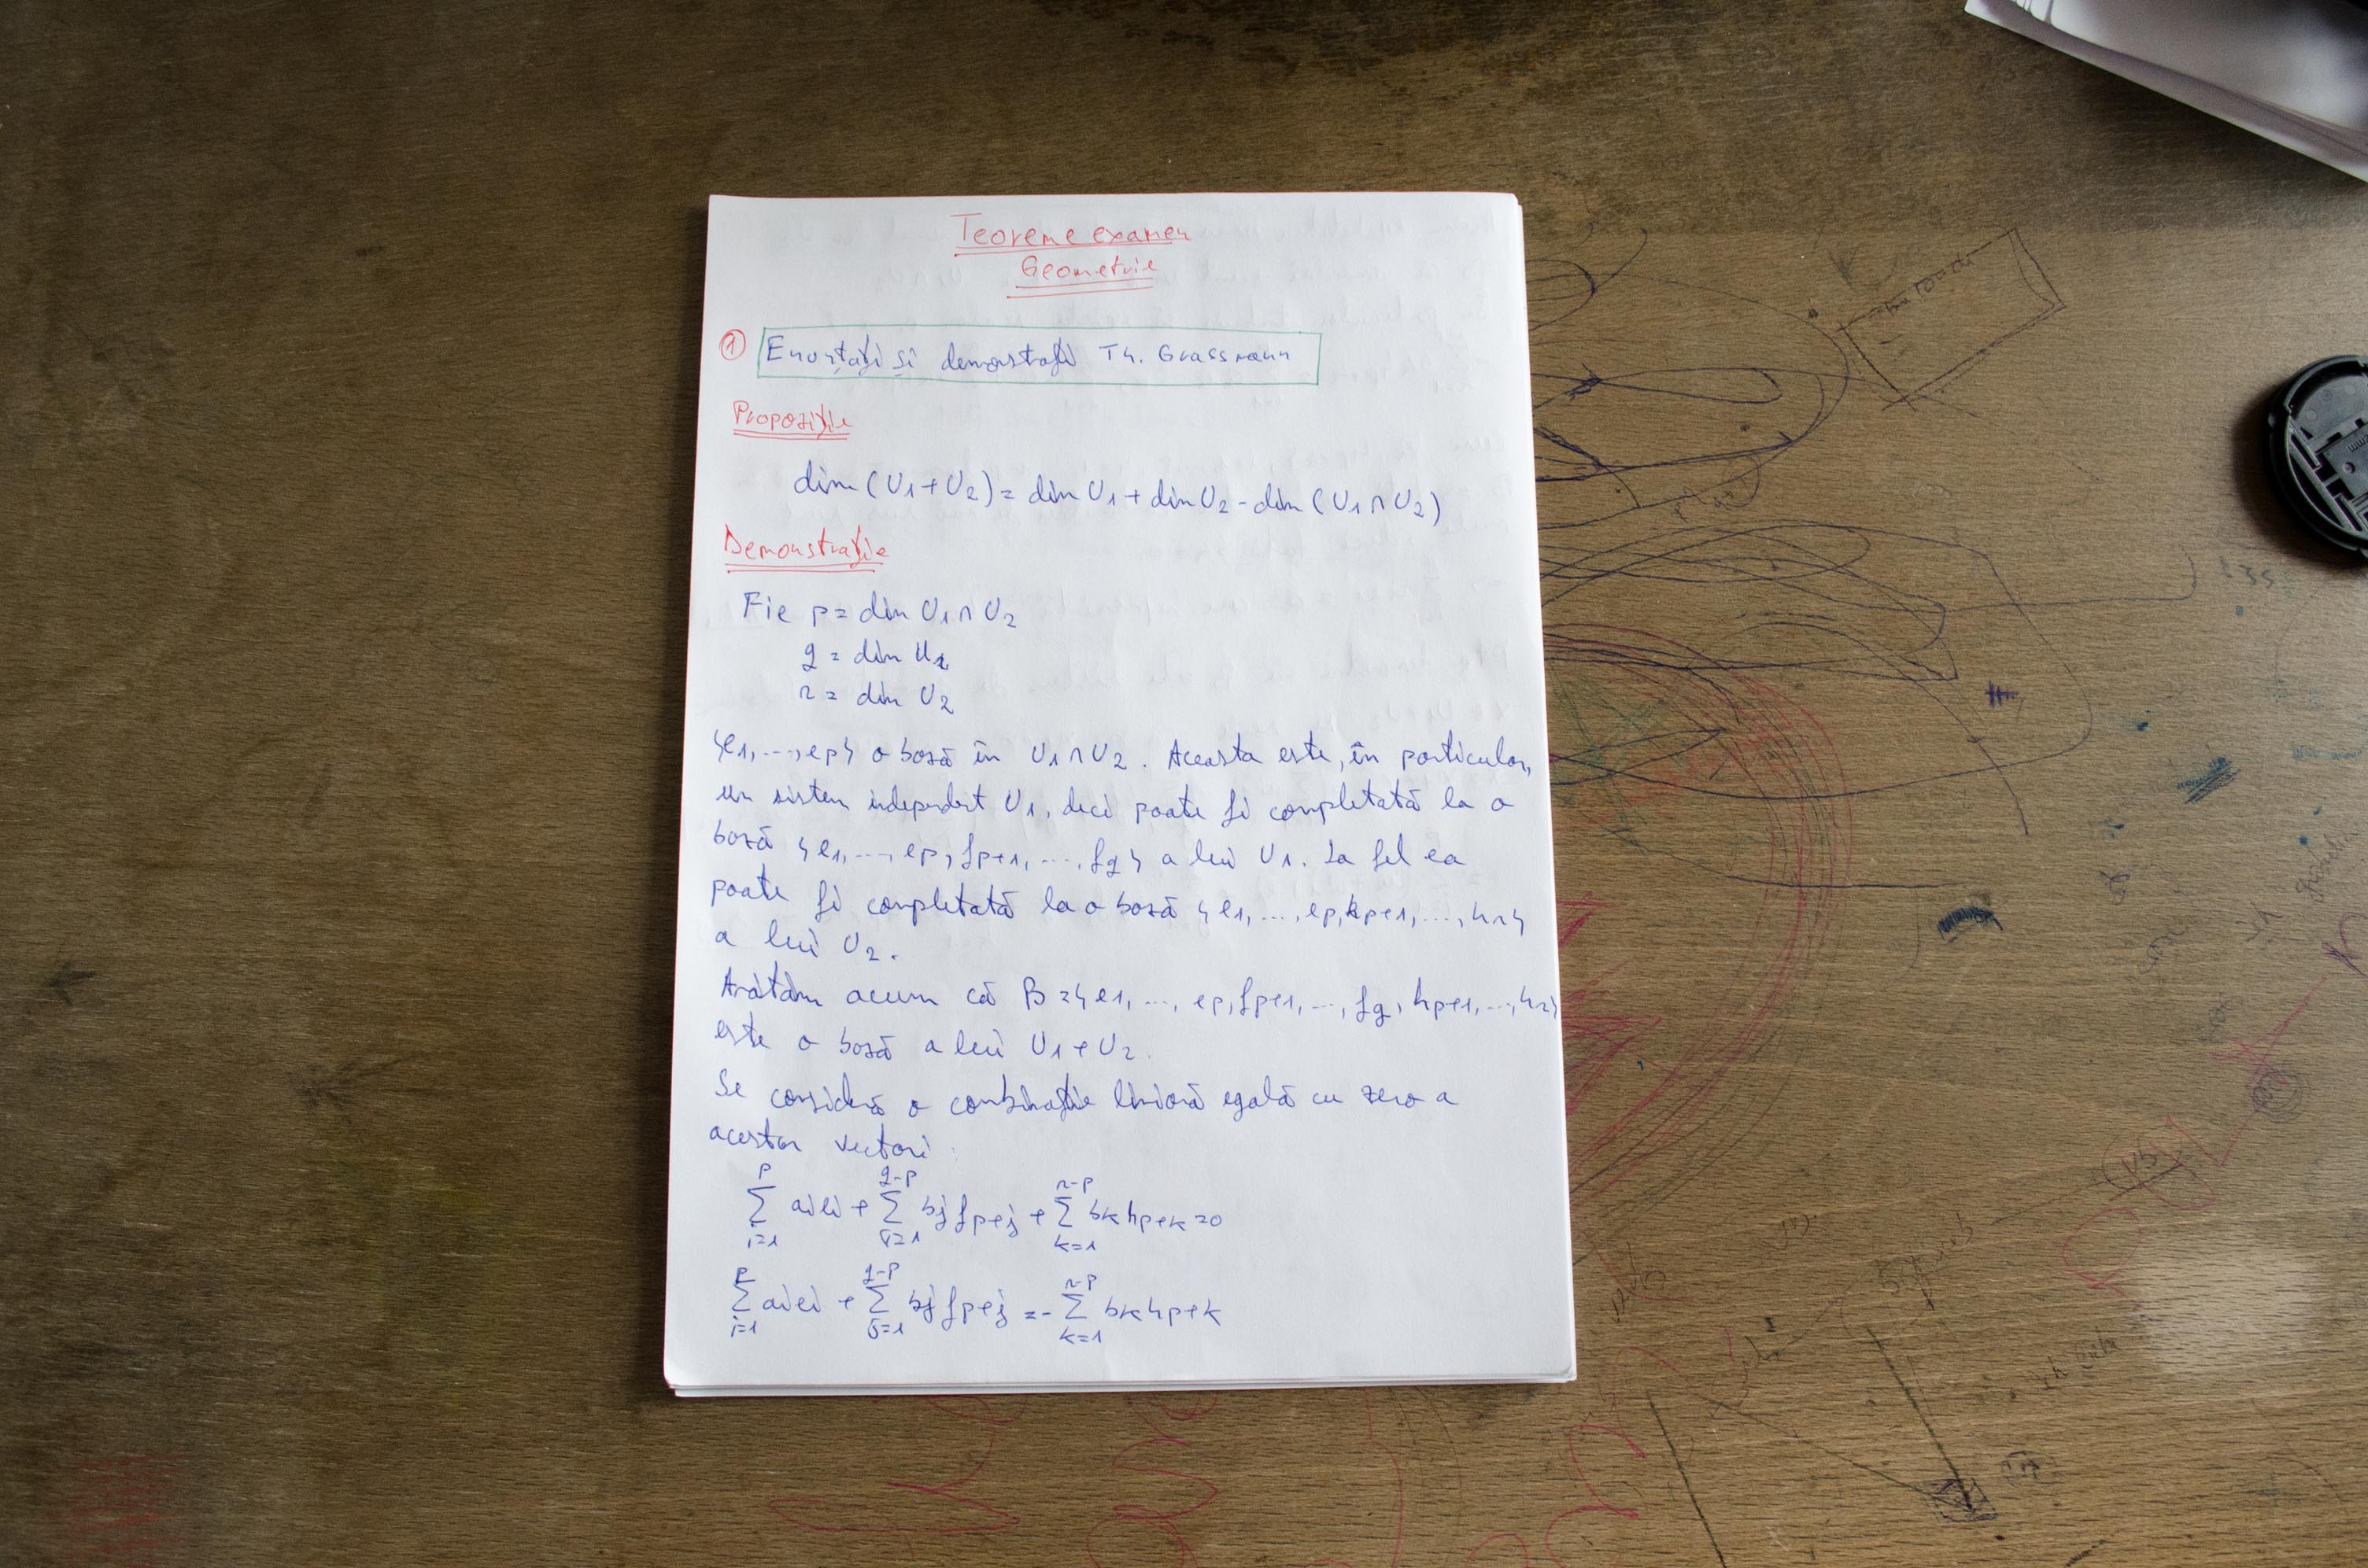 Teoreme examen
Geometrie
1 Enunțați și demonstrați Th. Grassmann
Propoziție
dim (U1+U2) = dim U1 + dim U2 - dim (U1 ∩ U2)
Demonstrație
Fie p = dim U1 ∩ U2
q = dim U1
r = dim U2
{e1, ..., ep} o bază în U1 ∩ U2. Aceasta este, în particular,
un sistem independent U1, deci poate fi completată la o
bază {e1, ..., ep, fp+1, ..., fq} a lui U1. La fel ea
poate fi completată la o bază {e1, ..., ep, hp+1, ..., hr}
a lui U2.
Arătăm acum că B = {e1, ..., ep, fp+1, ..., fq, hp+1, ..., hr}
este o bază a lui U1 + U2.
Se consideră o combinație liniară egală cu zero a
acestor vectori:
p ∑ i=1 aiei + q-p ∑ j=1 bj fp+j + r-p ∑ k=1 bk hp+k = 0
p ∑ i=1 aiei + q-p ∑ j=1 bj fp+j = - r-p ∑ k=1 bk hp+k